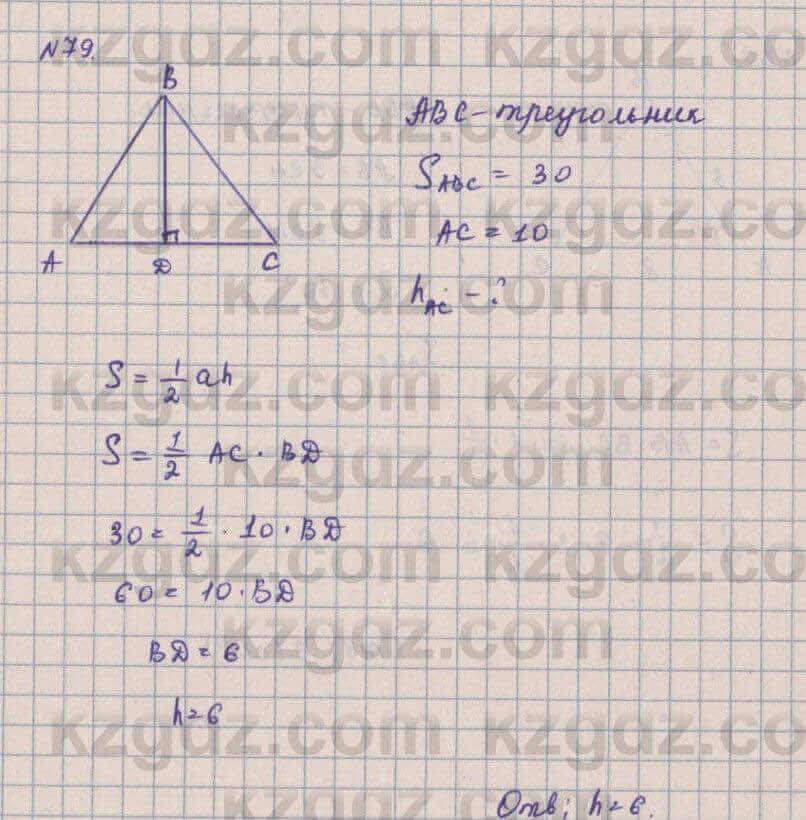 №79.
B
A
D
C
ABC - треугольник
S_ABC = 30
AC = 10
h_AC - ?
S = 1/2 ah
S = 1/2 AC · BD
30 = 1/2 · 10 · BD
60 = 10 · BD
BD = 6
h = 6
Отв; h = 6.
kzgdz.com
kzgdz.com
kzgdz.com
kzgdz.com
kzgdz.com
kzgdz.com
kzgdz.com
kzgdz.com
kzgdz.com
kzgdz.com
kzgdz.com
kzgdz.com
kzgdz.com
kzgdz.com